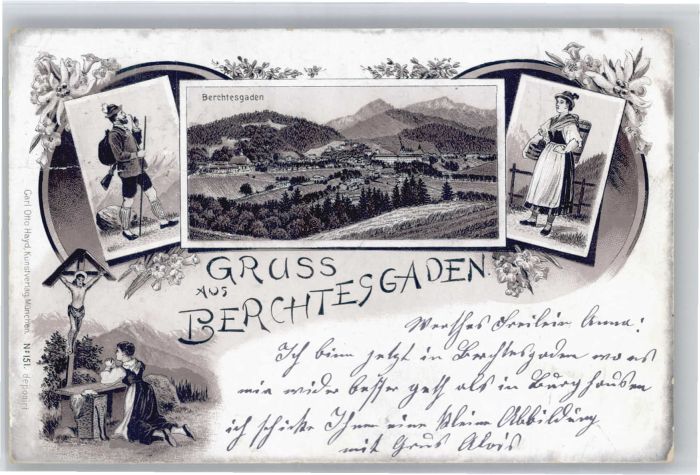 Berchtesgaden
GRUSS
AUS
BERCHTESGADEN.
Carl Otto Hayd, Kunstverlag, München. No 151. deponirt
Werthes Freilein Anna!
Ich binn jetzt in Berchtesgaden wo es
mir wider besser geth als in Burghausen
ich schicke Ihnen eine kleine Abbildung
mit Grus Alois